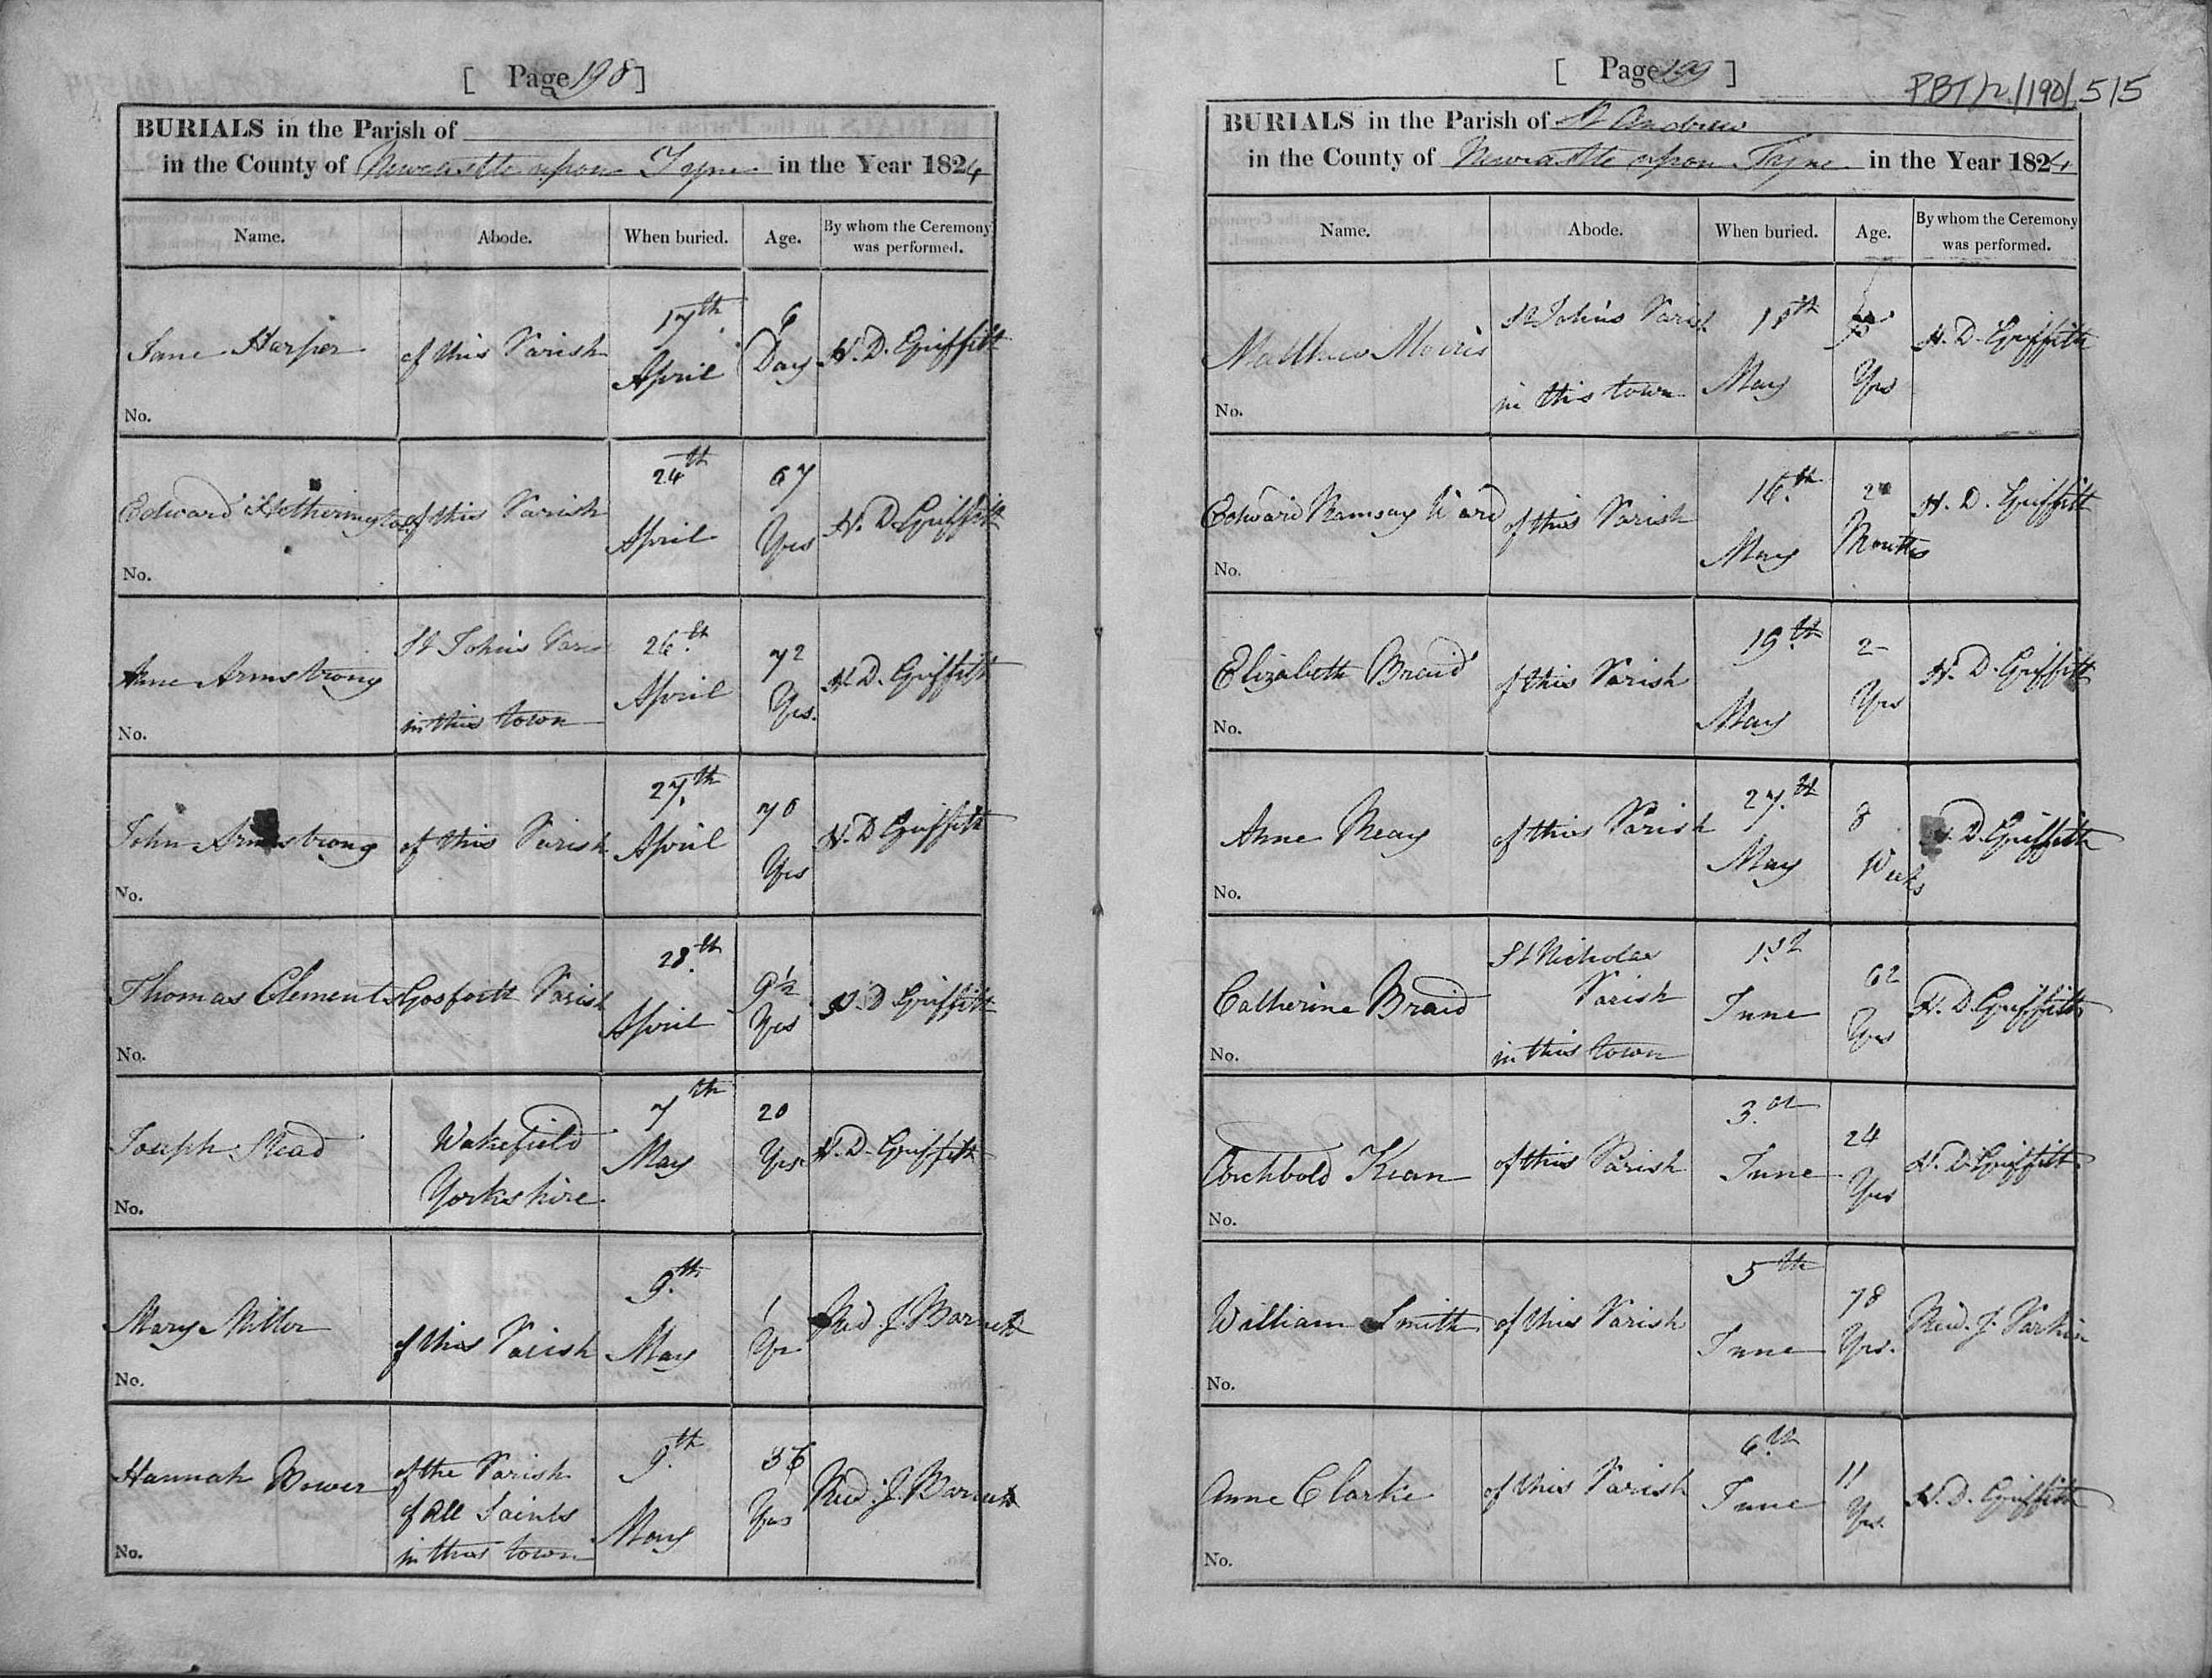 [ Page 198 ]
BURIALS in the Parish of
in the County of Newcastle upon Tyne in the Year 1824
Name. Abode. When buried. Age. By whom the Ceremony was performed.
Jane Harper of this Parish 17th April 6 Day H. D. Griffith
No.
Edward Hetherington of this Parish 24th April 67 Yrs H. D. Griffith
No.
Anne Armstrong St John's Paris in this town 26th April 72 Yrs. H. D. Griffith
No.
John Armstrong of this Parish 27th April 70 Yrs H. D Griffith
No.
Thomas Clement Gosforth Parish 28th April 9½ Yrs H. D Griffith
No.
Joseph Stead Wakefield Yorkshire 7th May 20 Yrs H. D. Griffith
No.
Mary Miller of this Parish 9th May 1 Yr Revd. J. Barnett
No.
Hannah Bower of the Parish of All Saints in this town 9th May 36 Yrs Revd. J. Barnett
No.
[ Page 199 ]
PBT/2/190/515
BURIALS in the Parish of St Andrew
in the County of Newcastle upon Tyne in the Year 1824
Name. Abode. When buried. Age. By whom the Ceremony was performed.
Matthew Morris St John's Parish in this town May Yrs H. D. Griffith
No.
Edward Ramsay Ward of this Parish 16th May 2 Months H. D. Griffith
No.
Elizabeth Braid of this Parish 19th May 2 Yrs H. D. Griffith
No.
Anne Meay of this Parish 27th May 8 Weeks H. D. Griffith
No.
Catherine Braid St Nicholas Parish in this town 1st June 62 Yrs H. D. Griffith
No.
Archbold Kean of this Parish 3.d June 24 Yrs H. D. Griffith
No.
William Smith of this Parish 5th June 78 Yrs. Revd. J. Parkin
No.
Anne Clarke of this Parish 6th June 11 Yrs. H. D. Griffith
No.